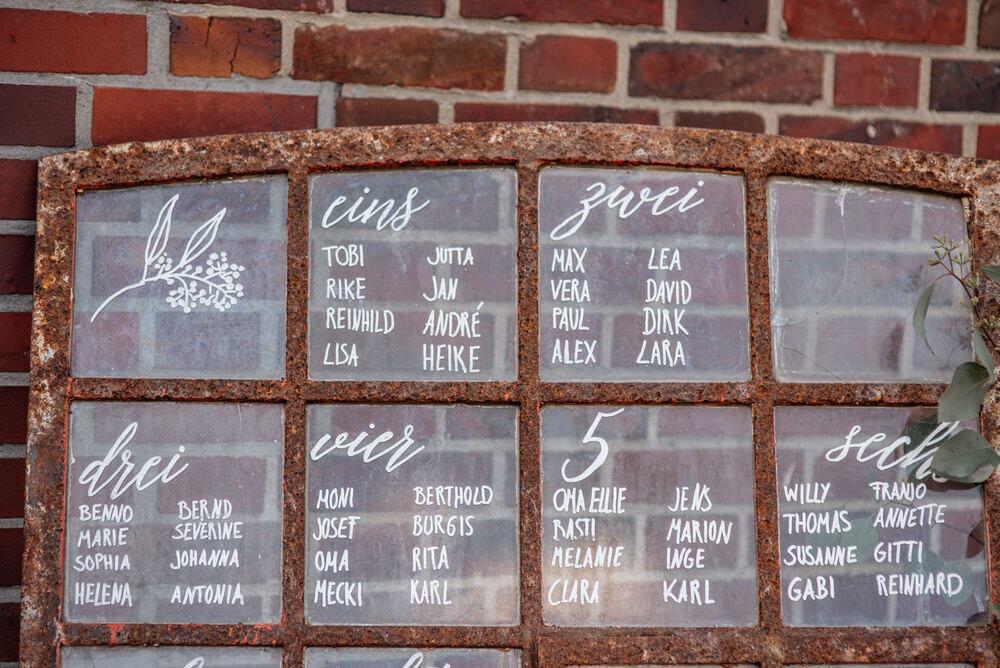 eins
TOBI JUTTA
RIKE JAN
REINHILD ANDRÉ
LISA HEIKE
zwei
MAX LEA
VERA DAVID
PAUL DIRK
ALEX LARA
drei
BENNO BERND
MARIE SEVERINE
SOPHIA JOHANNA
HELENA ANTONIA
vier
MONI BERTHOLD
JOSEF BURGIS
OMA RITA
MECKI KARL
5
OMA ELLIE JENS
BASTI MARION
MELANIE INGE
CLARA KARL
sech
WILLY FRANJO
THOMAS ANNETTE
SUSANNE GITTI
GABI REINHARD